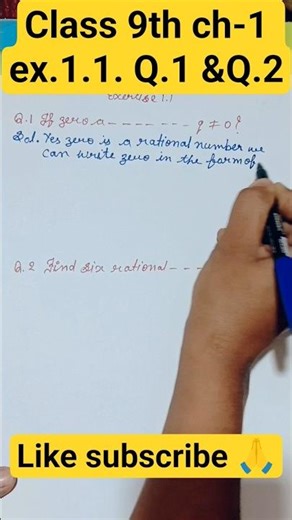 Class 9th ch-1
ex.1.1. Q.1 &Q.2
Exercise 1.1
Q.1 If zero a - - - - - - - q ≠ 0?
Sol. Yes zero is a rational number we
can write zero in the form of
Q.2 Find six rational - - -
Like subscribe 🙏